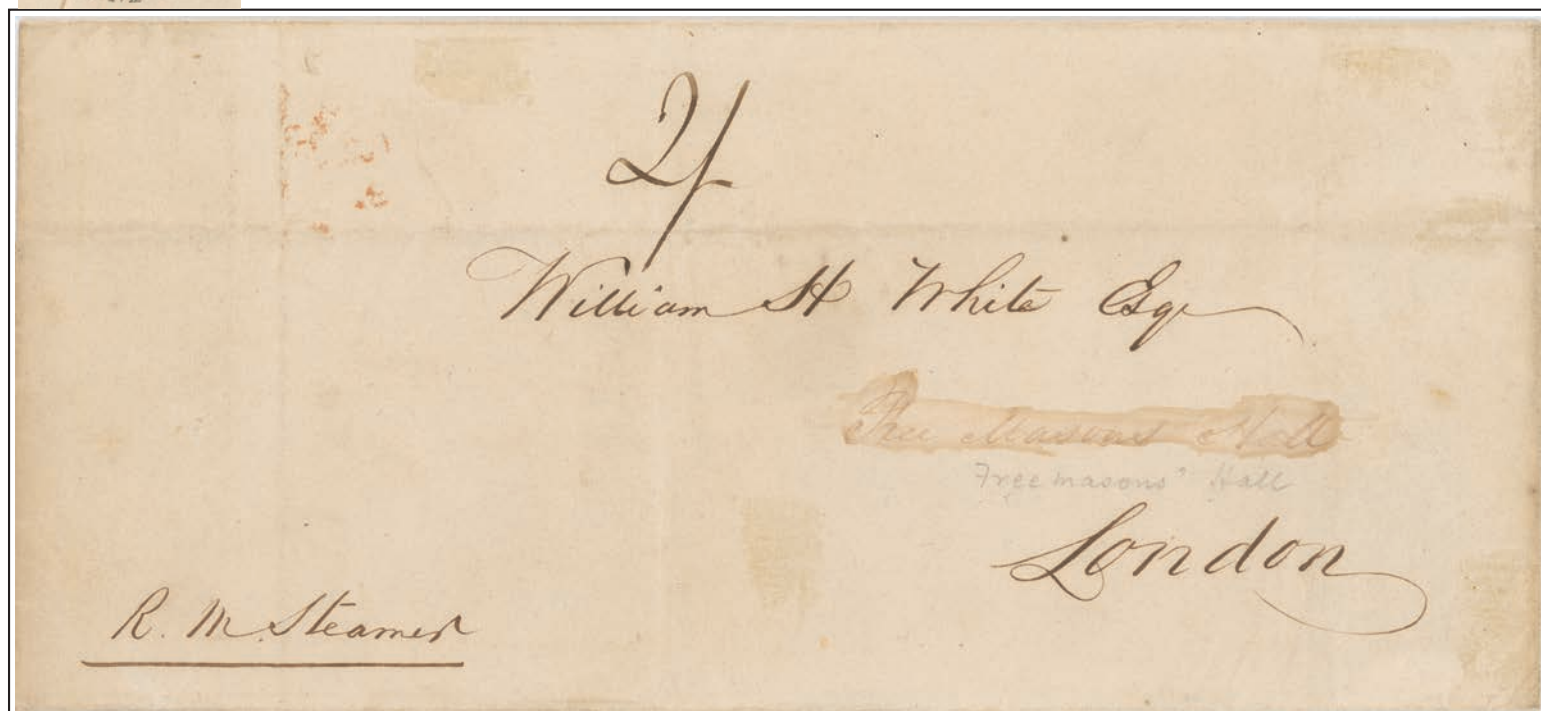 2/
William H White Esqr
Free Masons Hall
Freemasons' Hall
London
R. M. Steamer